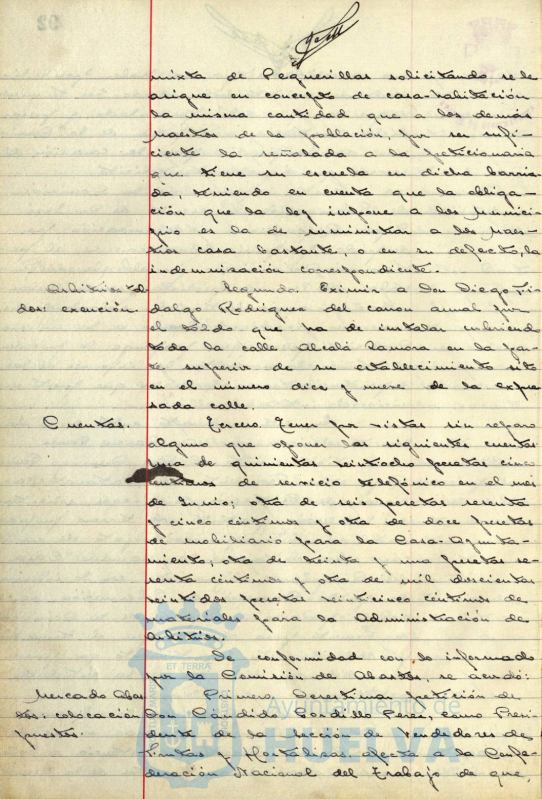 mixta de Pequerillas solicitando se le
asigne en concepto de casa-habitación
la misma cantidad que a los demás
Maestros de la población, por ser insufi-
ciente la señalada a la peticionaria
que tiene su escuela en dicha barria-
da, teniendo en cuenta que la obliga-
ción que la ley impone a los Munici-
pios es la de suministrar a los Maes-
tros casa bastante, o en su defecto, la
indemnización correspondiente.
Arbitrios tol-
dos: exención.
Segundo. Eximir a Don Diego Fi-
dalgo Rodríguez del canon anual por
el toldo que ha de instalar cubriendo
toda la calle Alcalá Zamora en la par-
te superior de su establecimiento sito
en el número diez y nueve de la expre-
sada calle.
Cuentas.
Tercero. Tener por vistas sin reparo
alguno que oponer las siguientes cuentas
una de quinientas veintiocho pesetas cinco
céntimos de servicio telefónico en el mes
de Junio; otra de seis pesetas setenta
y cinco céntimos y otra de doce pesetas
de mobiliario para la Casa-Ayunta-
miento; otra de treinta y una pesetas se-
tenta céntimos y otra de mil doscientas
veintidos pesetas veinticinco céntimos de
materiales para la Administración de
Arbitrios.
De conformidad con lo informado
por la Comisión de Abastos, se acordó:
Mercado Abas-
tos: colocación
puestos.
Primero. Desestimar petición de
Don Cándido Gordillo Pérez, como Presi-
dente de la Sección de Vendedores de
Frutas y Hortalizas, afecta a la Confe-
deración Nacional del Trabajo de que,
Ayuntamiento de
HUELVA
ET TERRA